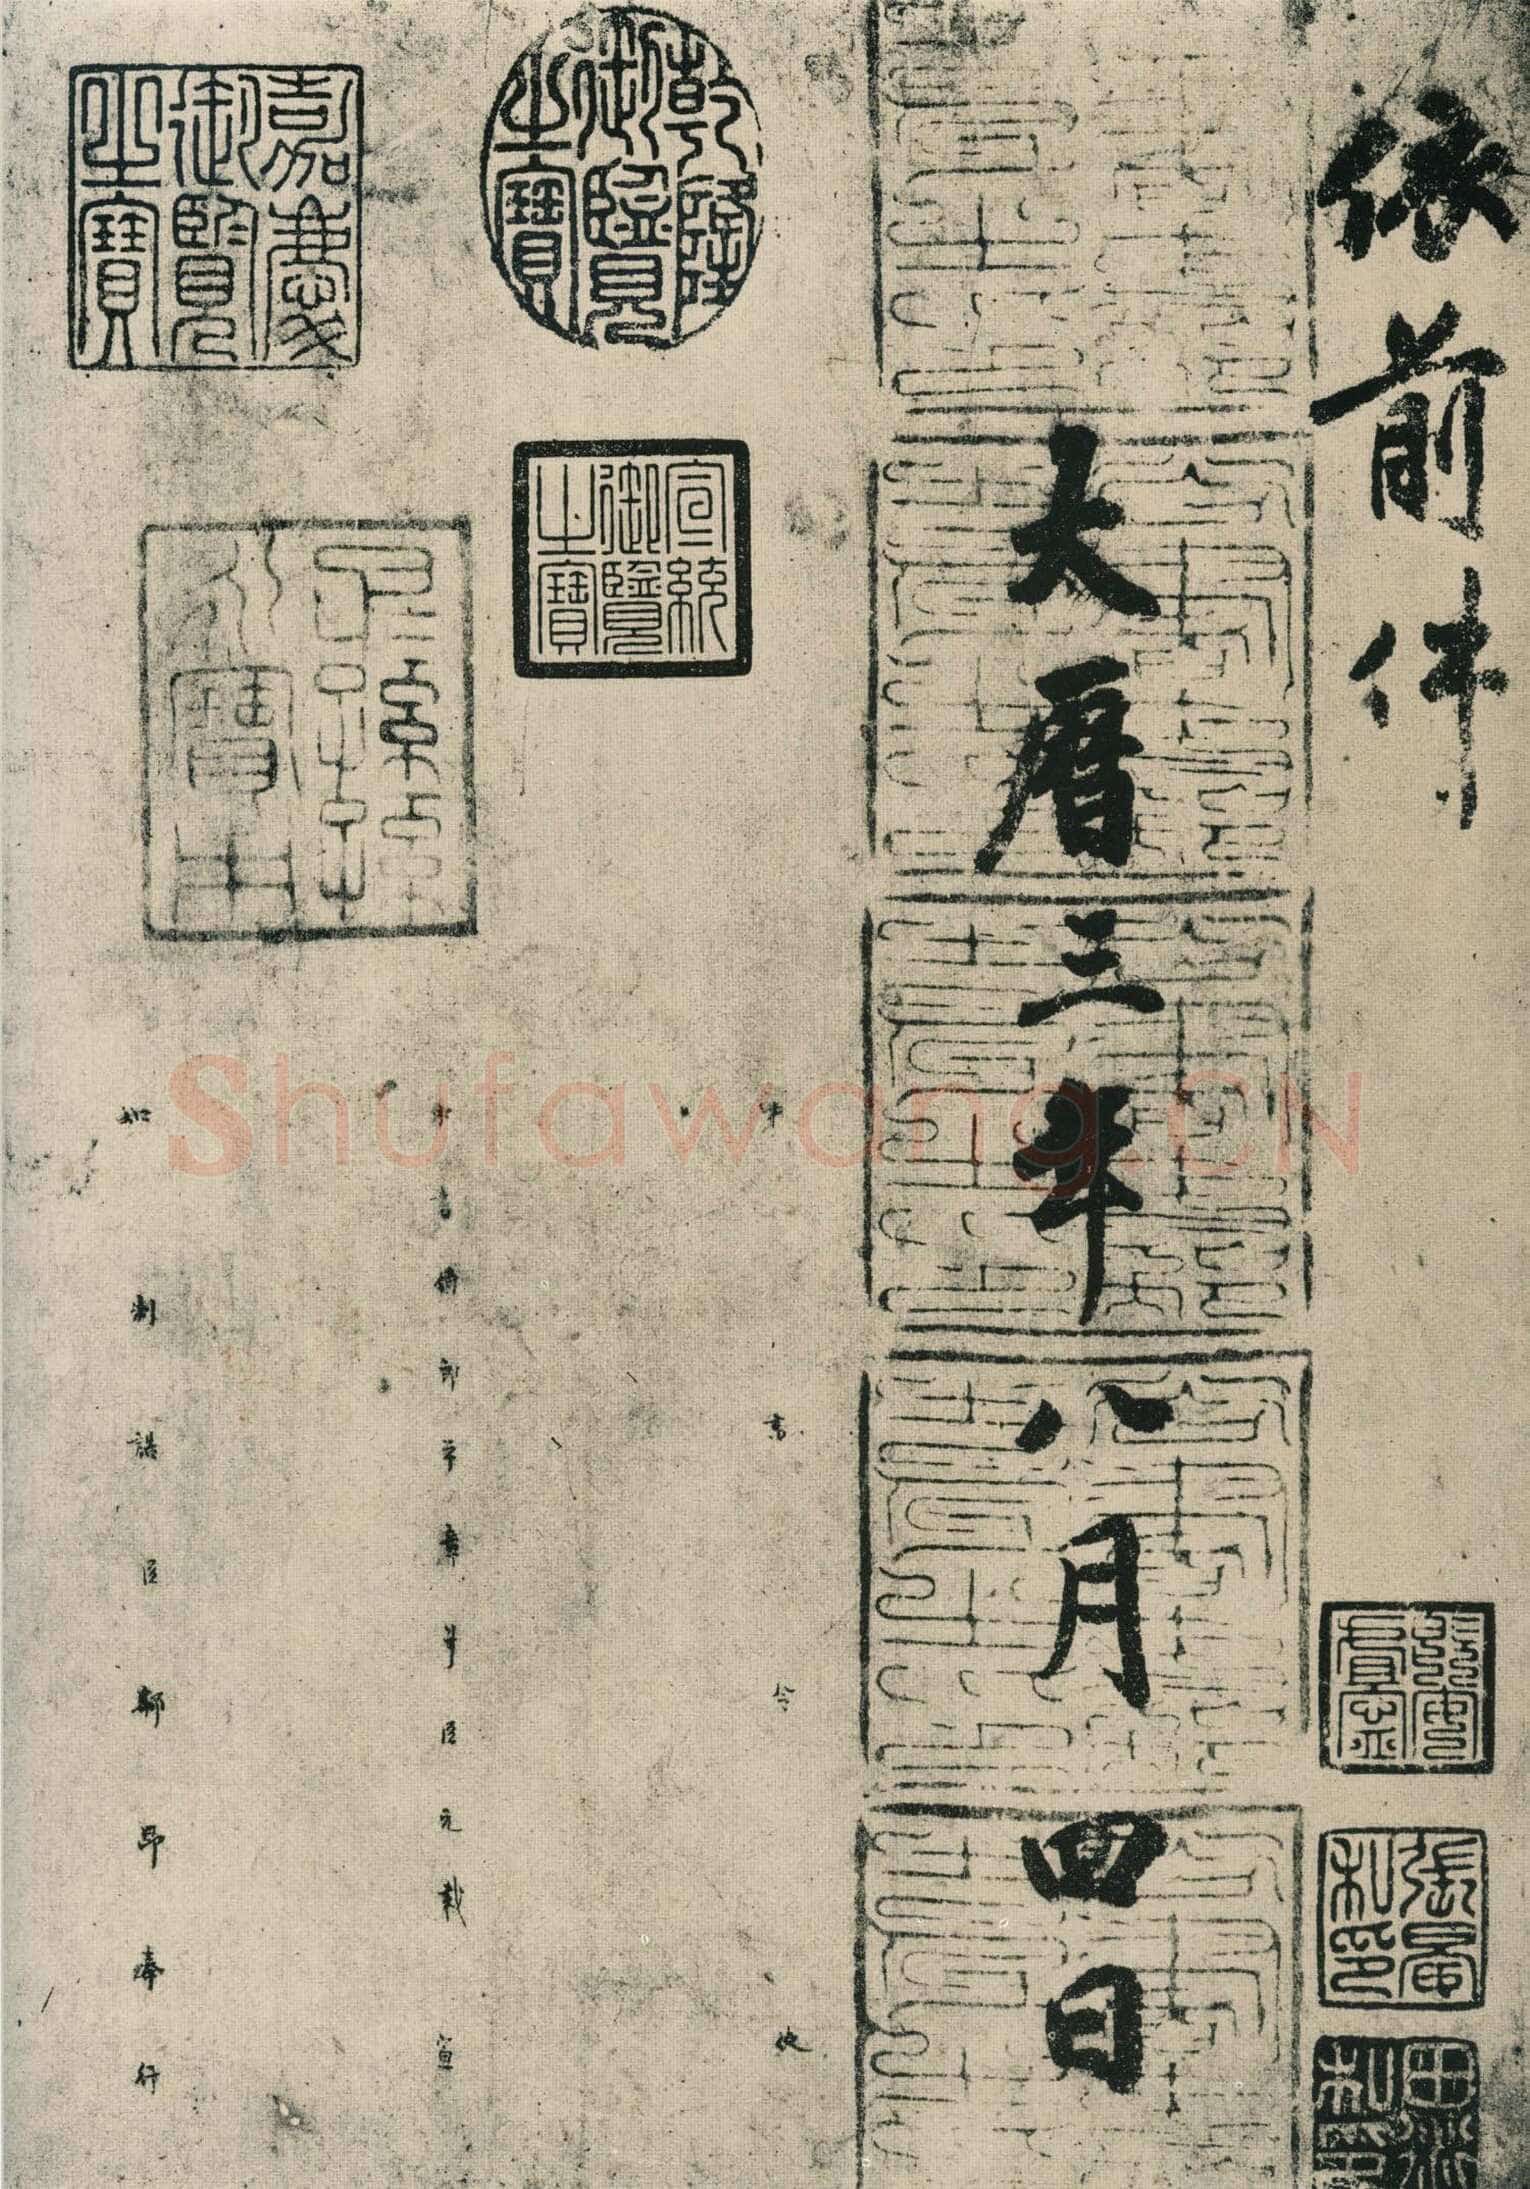 依前件
大曆三年八月四日
中書令使
中書侍郎平章事臣元載宣
知制誥臣郗昂奉行
乾隆御覽之寶
嘉慶御覽之寶
宣統御覽之寶
張晏私印
Shufawang.CN